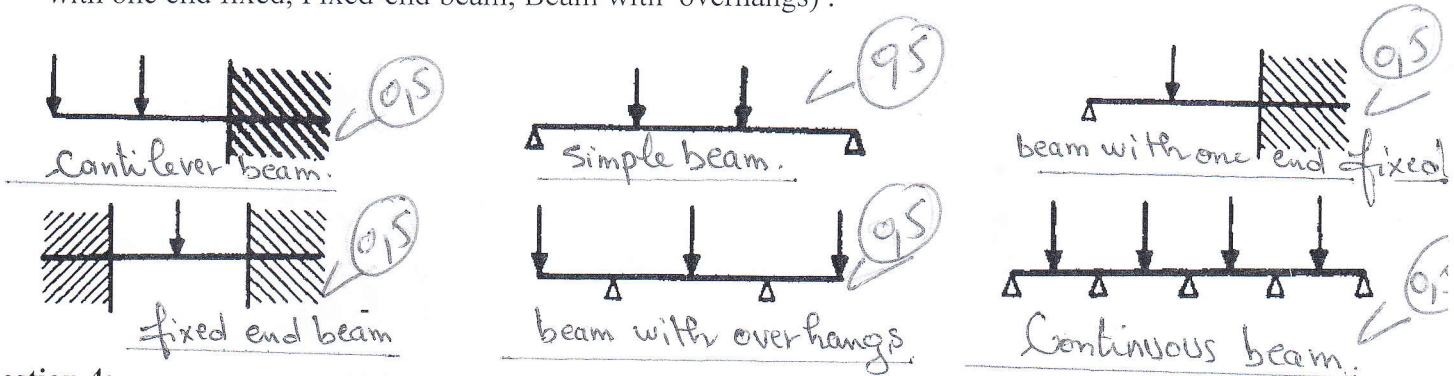 with one end fixed, Fixed end beam, Beam with overhangs) .
0,5
0,5
0,5
Cantilever beam.
Simple beam.
beam with one end fixed
0,5
0,5
fixed end beam
beam with overhangs
Continuous beam.